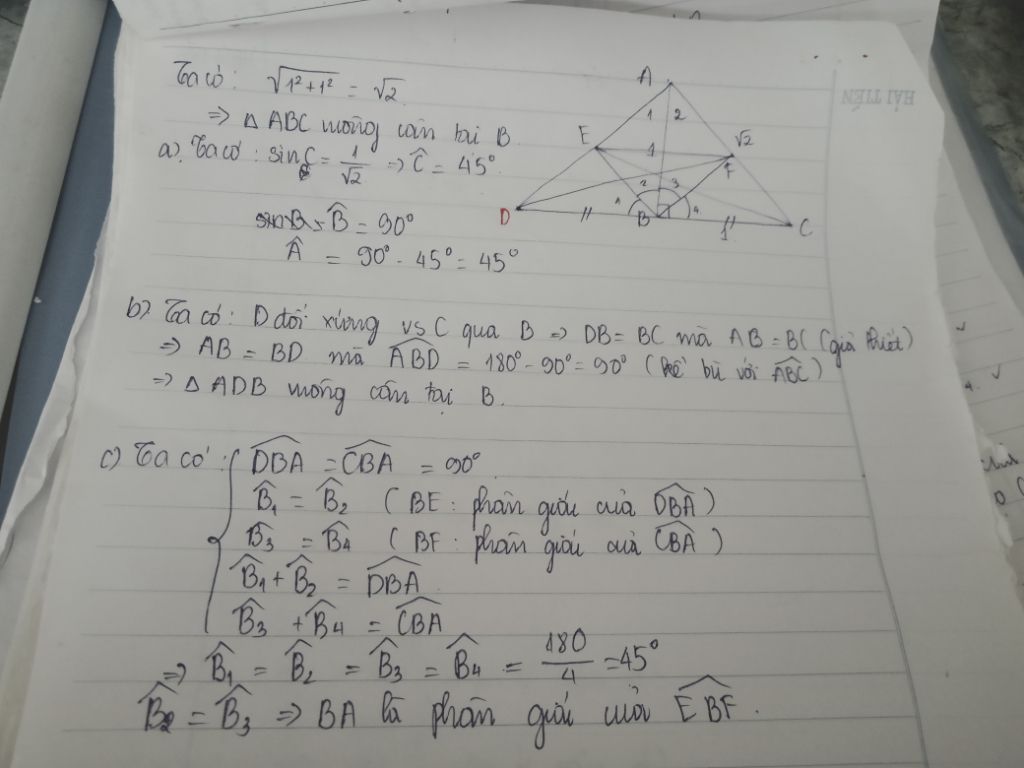 Ta có: √1²+1² = √2.
=> Δ ABC vuông cân tại B.
a). Ta có: sin C = 1/√2 => Ĉ = 45°
B̂ = 90°
Â = 90° - 45° = 45°
A
1 2
E
1
√2
F
2 3
1 4
D
B
1
C
HẢI TIẾN
b). Ta có: D đối xứng vs C qua B => DB = BC mà AB = BC (giả thiết)
=> AB = BD mà ABD = 180° - 90° = 90° (kề bù với ABC)
=> Δ ADB vuông cân tại B.
c) Ta có: DBA = CBA = 90°
B̂1 = B̂2 (BE: phân giác của DBA)
B̂3 = B̂4 (BF: phân giác của CBA)
B̂1 + B̂2 = DBA
B̂3 + B̂4 = CBA
=> B̂1 = B̂2 = B̂3 = B̂4 = 180/4 = 45°
B̂2 = B̂3 => BA là phân giác của EBF.